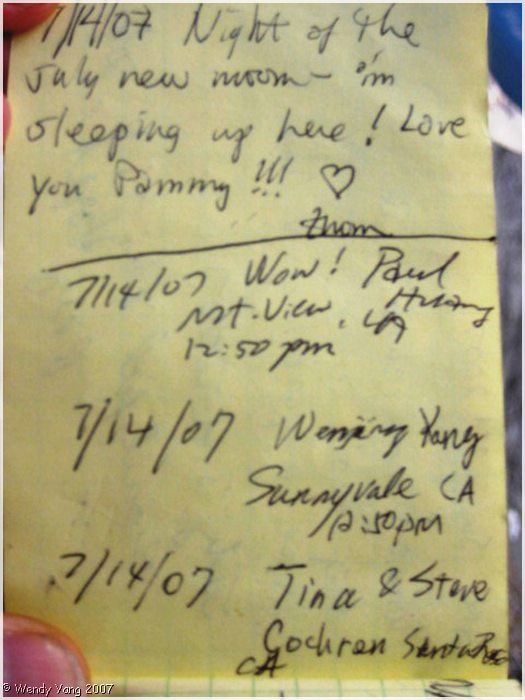 7/14/07 Night of the
July new moon - I'm
sleeping up here! Love
you Pammy!!! ♡
Thom
7/14/07 Wow! Paul
Huang
Mt. View, CA
12:50 pm
7/14/07 Wenjing Yang
Sunnyvale CA
12:50pm
7/14/07 Tina & Steve
Cochran Santa Rosa
CA
© Wendy Yang 2007